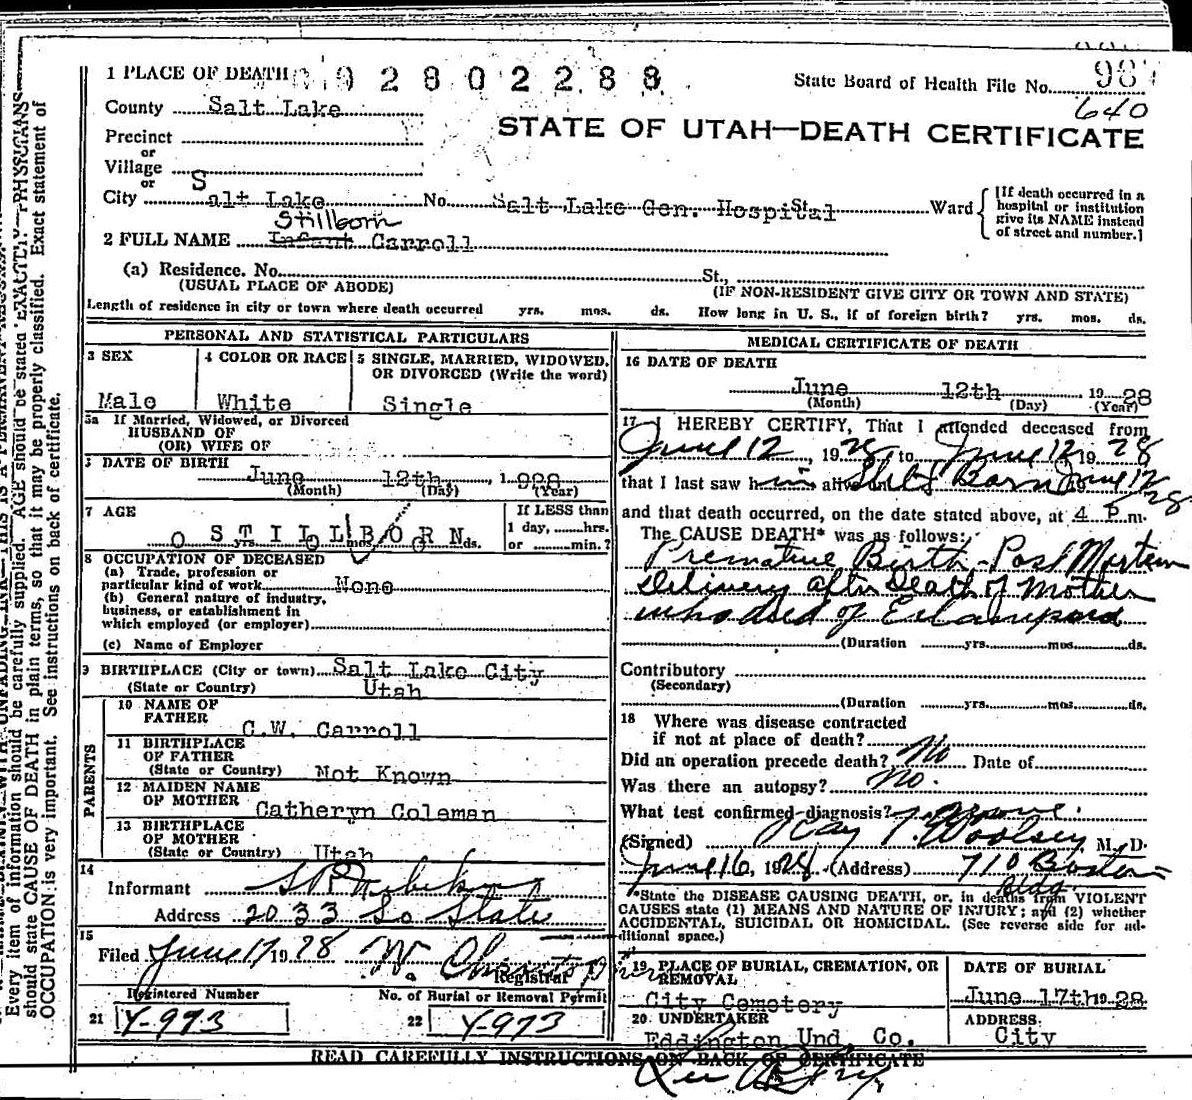 1 PLACE OF DEATH 1928 02288
State Board of Health File No. 98
640
County Salt Lake
STATE OF UTAH—DEATH CERTIFICATE
Precinct
or
Village
or
City Salt Lake No. Salt Lake Gen. Hospital St. Ward
[If death occurred in a hospital or institution give its NAME instead of street and number.]
Stillborn
2 FULL NAME Infant Carroll
(a) Residence. No. St.,
(USUAL PLACE OF ABODE) (IF NON-RESIDENT GIVE CITY OR TOWN AND STATE)
Length of residence in city or town where death occurred yrs. mos. ds. How long in U. S., if of foreign birth? yrs. mos. ds.
PERSONAL AND STATISTICAL PARTICULARS
3 SEX 4 COLOR OR RACE 5 SINGLE, MARRIED, WIDOWED, OR DIVORCED (Write the word)
Male White Single
5a If Married, Widowed, or Divorced
HUSBAND OF
(OR) WIFE OF
DATE OF BIRTH
June 12th, 1928
(Month) (Day) (Year)
7 AGE
If LESS than
1 day, hrs.
or min.?
0 STILLBORN yrs. mos. ds.
8 OCCUPATION OF DECEASED
(a) Trade, profession or
particular kind of work None
(b) General nature of industry,
business, or establishment in
which employed (or employer)
(c) Name of Employer
9 BIRTHPLACE (City or town) Salt Lake City
(State or Country) Utah
PARENTS
10 NAME OF
FATHER C.W. Carroll
11 BIRTHPLACE
OF FATHER
(State or Country) Not Known
12 MAIDEN NAME
OF MOTHER Catheryn Coleman
13 BIRTHPLACE
OF MOTHER
(State or Country) Utah
14
Informant
Address 2033 So State
15
Filed June 17 1928
Registrar
Registered Number No. of Burial or Removal Permit
21 Y-973 22 Y-973
MEDICAL CERTIFICATE OF DEATH
16 DATE OF DEATH
June 12th 1928
(Month) (Day) (Year)
17 I HEREBY CERTIFY, That I attended deceased from
June 12, 1928, to June 12 1928
that I last saw him alive on Still Born June 12 28
and that death occurred, on the date stated above, at 4 P. m.
The CAUSE DEATH* was as follows:
Premature Birth - Post Mortem
Delivery after Death of Mother
who died of
(Duration yrs. mos. ds.
Contributory
(Secondary)
(Duration yrs. mos. ds.
18 Where was disease contracted
if not at place of death?
Did an operation precede death? No Date of
Was there an autopsy? No.
What test confirmed diagnosis?
(Signed) Ray T. Woolsey M. D.
June 16, 1928 (Address) 710 Boston
Bldg.
*State the DISEASE CAUSING DEATH, or, in deaths from VIOLENT
CAUSES state (1) MEANS AND NATURE OF INJURY; and (2) whether
ACCIDENTAL, SUICIDAL OR HOMICIDAL. (See reverse side for ad-
ditional space.)
19 PLACE OF BURIAL, CREMATION, OR REMOVAL DATE OF BURIAL
City Cemetery June 17th 1928
20 UNDERTAKER ADDRESS.
Eddington Und. Co. City
READ CAREFULLY INSTRUCTIONS ON BACK OF CERTIFICATE
Every item of information should be carefully supplied. AGE should be stated EXACTLY. PHYSICIANS
should state CAUSE OF DEATH in plain terms, so that it may be properly classified. Exact statement of
OCCUPATION is very important. See instructions on back of certificate.